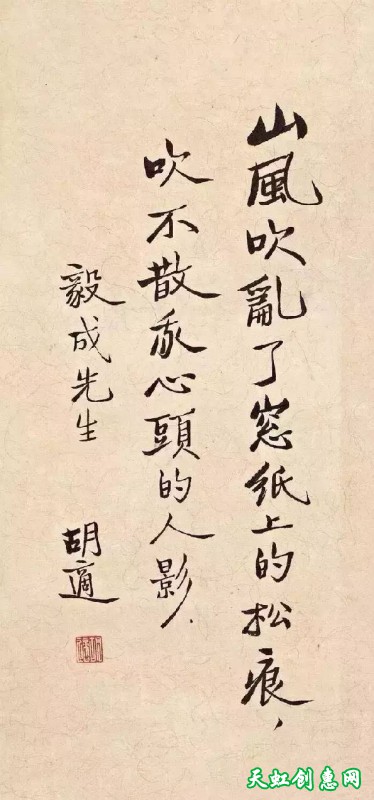 山風吹亂了窓纸上的松痕，
吹不散我心頭的人影．
毅成先生
胡適
天虹创惠网